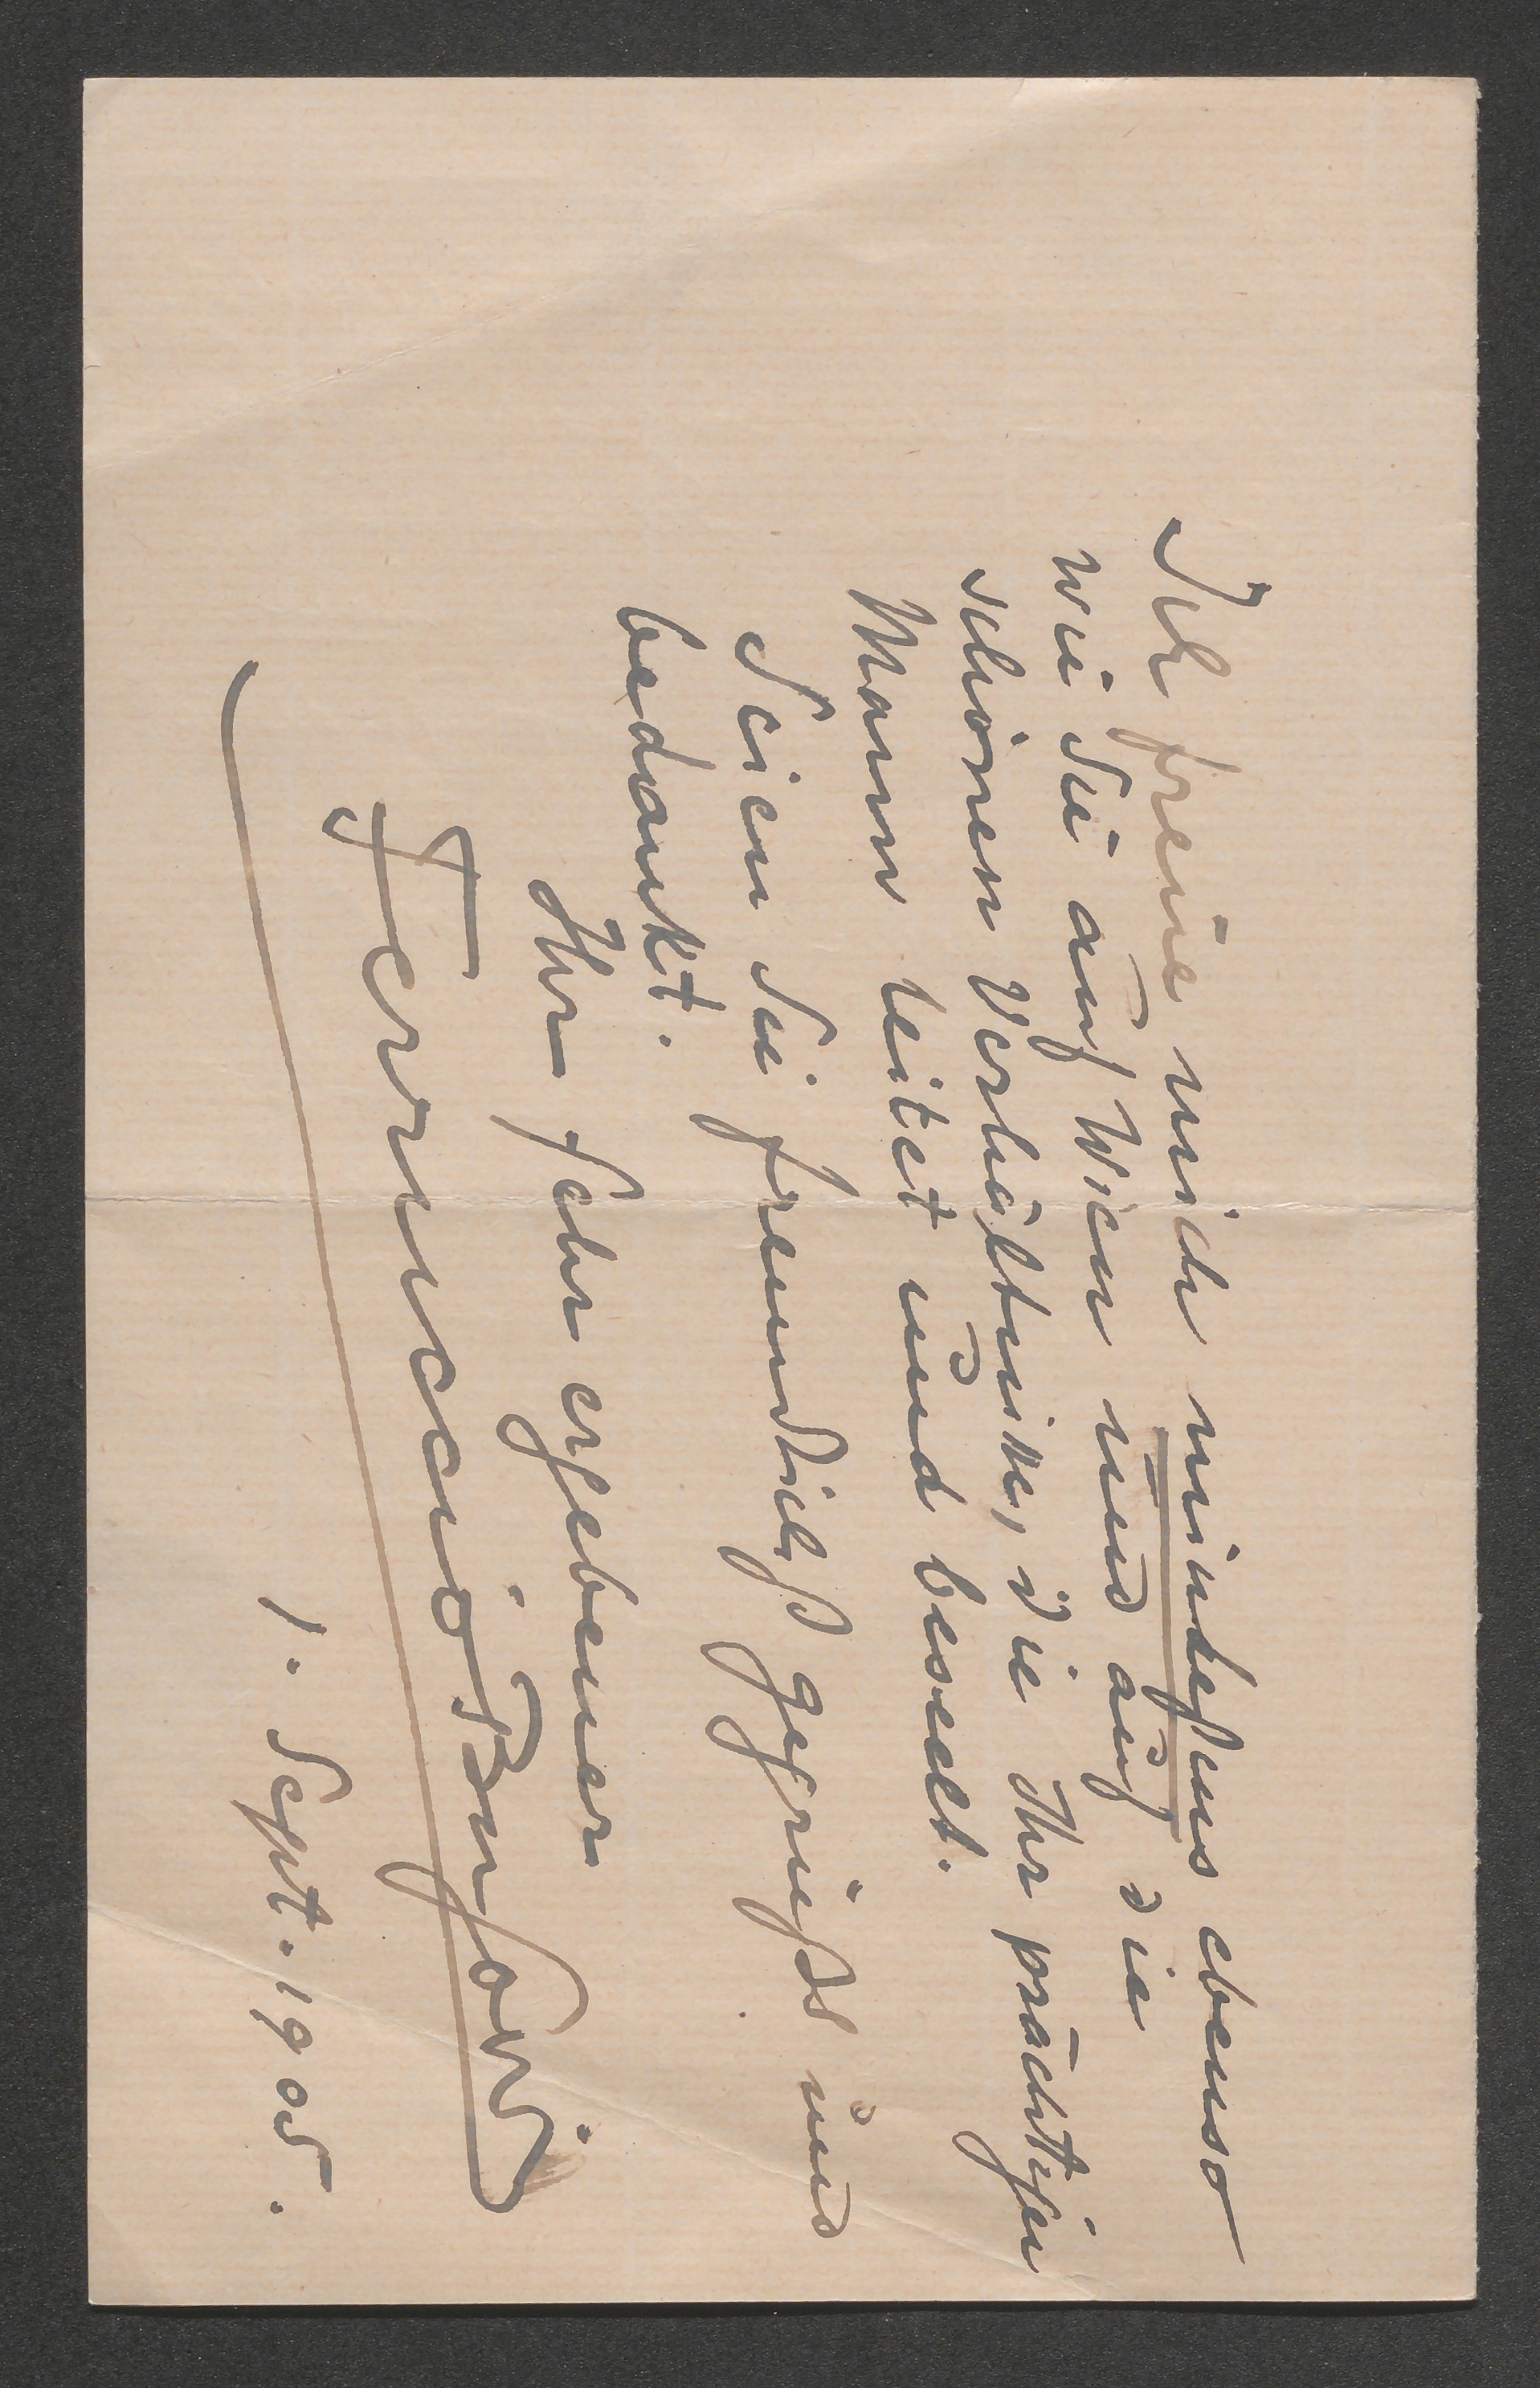 Ich freue mich mindestens ebenso
wie Sie auf Wien und auf die
schönen Verhältnisse, die Ihr prächtiger
Mann leitet und beseelt.
Seien Sie freundlichst gegrüsst und
bedankt.
Ihr sehr ergebener
Ferruccio Busoni
1. Sept. 1905.